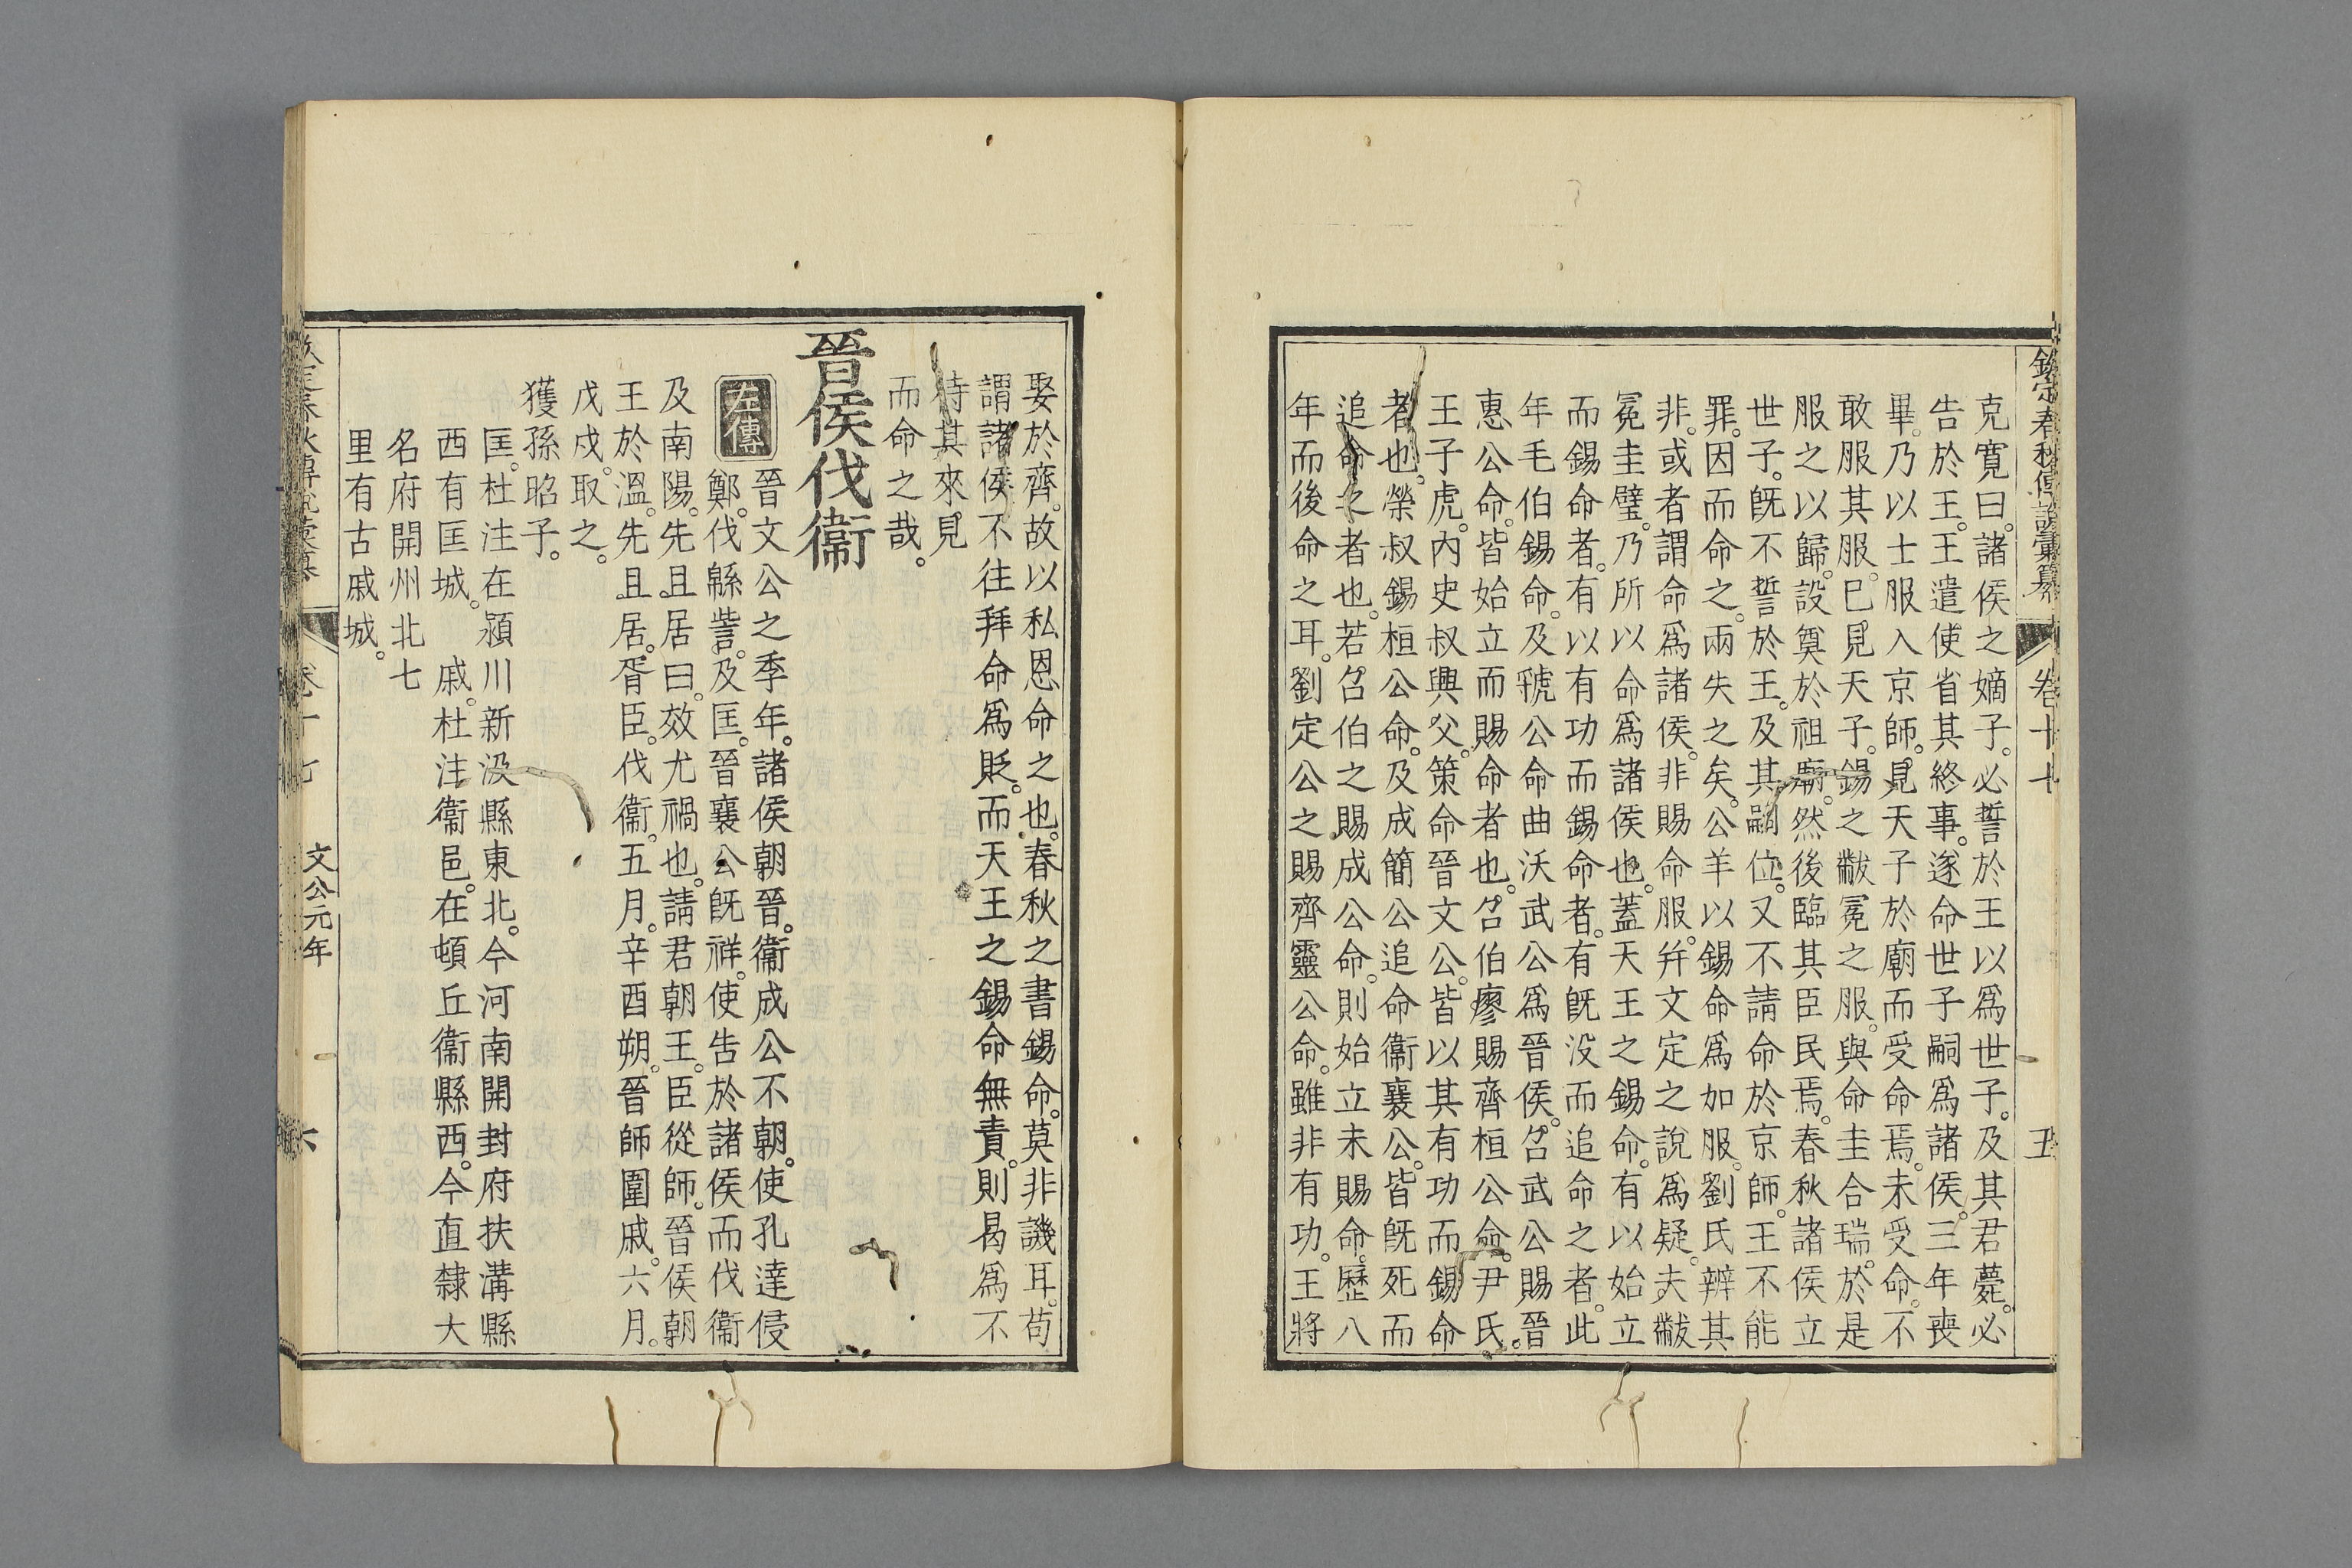 欽定春秋傳說彙纂 卷十七 五
克寬曰。諸侯之嫡子。必誓於王以爲世子。及其君薨。必
告於王。王遣使省其終事。遂命世子嗣爲諸侯。三年喪
畢。乃以士服入京師。見天子於廟而受命焉。未受命。不
敢服其服。巳見天子。錫之黻冕之服。與命圭合瑞。於是
服之以歸。設奠於祖廟。然後臨其臣民焉。春秋諸侯立
世子。旣不誓於王。及其嗣位。又不請命於京師。王不能
罪。因而命之。兩失之矣。公羊以錫命爲加服。劉氏辨其
非。或者謂命爲諸侯。非賜命服。幷文定之說爲疑。夫黻
冕圭璧。乃所以命爲諸侯也。蓋天王之錫命。有以始立
而錫命者。有以有功而錫命者。有旣没而追命之者。此
年毛伯錫命。及虢公命曲沃武公爲晉侯。召武公賜晉
惠公命。皆始立而賜命者也。召伯廖賜齊桓公命。尹氏。
王子虎。內史叔興父。策命晉文公。皆以其有功而錫命
者也。榮叔錫桓公命。及成簡公追命衞襄公。皆旣死而
追命之者也。若召伯之賜成公命。則始立未賜命。歷八
年而後命之耳。劉定公之賜齊靈公命。雖非有功。王將
娶於齊。故以私恩命之也。春秋之書錫命。莫非譏耳。苟
謂諸侯不往拜命爲貶。而天王之錫命無責。則曷爲不
待其來見
而命之哉。
晉侯伐衞
左傳 晉文公之季年。諸侯朝晉。衞成公不朝。使孔達侵
鄭。伐緜訾。及匡。晉襄公旣祥。使告於諸侯而伐衞
及南陽。先且居曰。效尤禍也。請君朝王。臣從師。晉侯朝
王於溫。先且居。胥臣。伐衞。五月。辛酉朔。晉師圍戚。六月。
戊戌。取之。
獲孫昭子。
匡。杜注在潁川新汲縣東北。今河南開封府扶溝縣
西有匡城。 戚。杜注衞邑。在頓丘衞縣西。今直隸大
名府開州北七
里有古戚城。
卷十七 文公元年 六